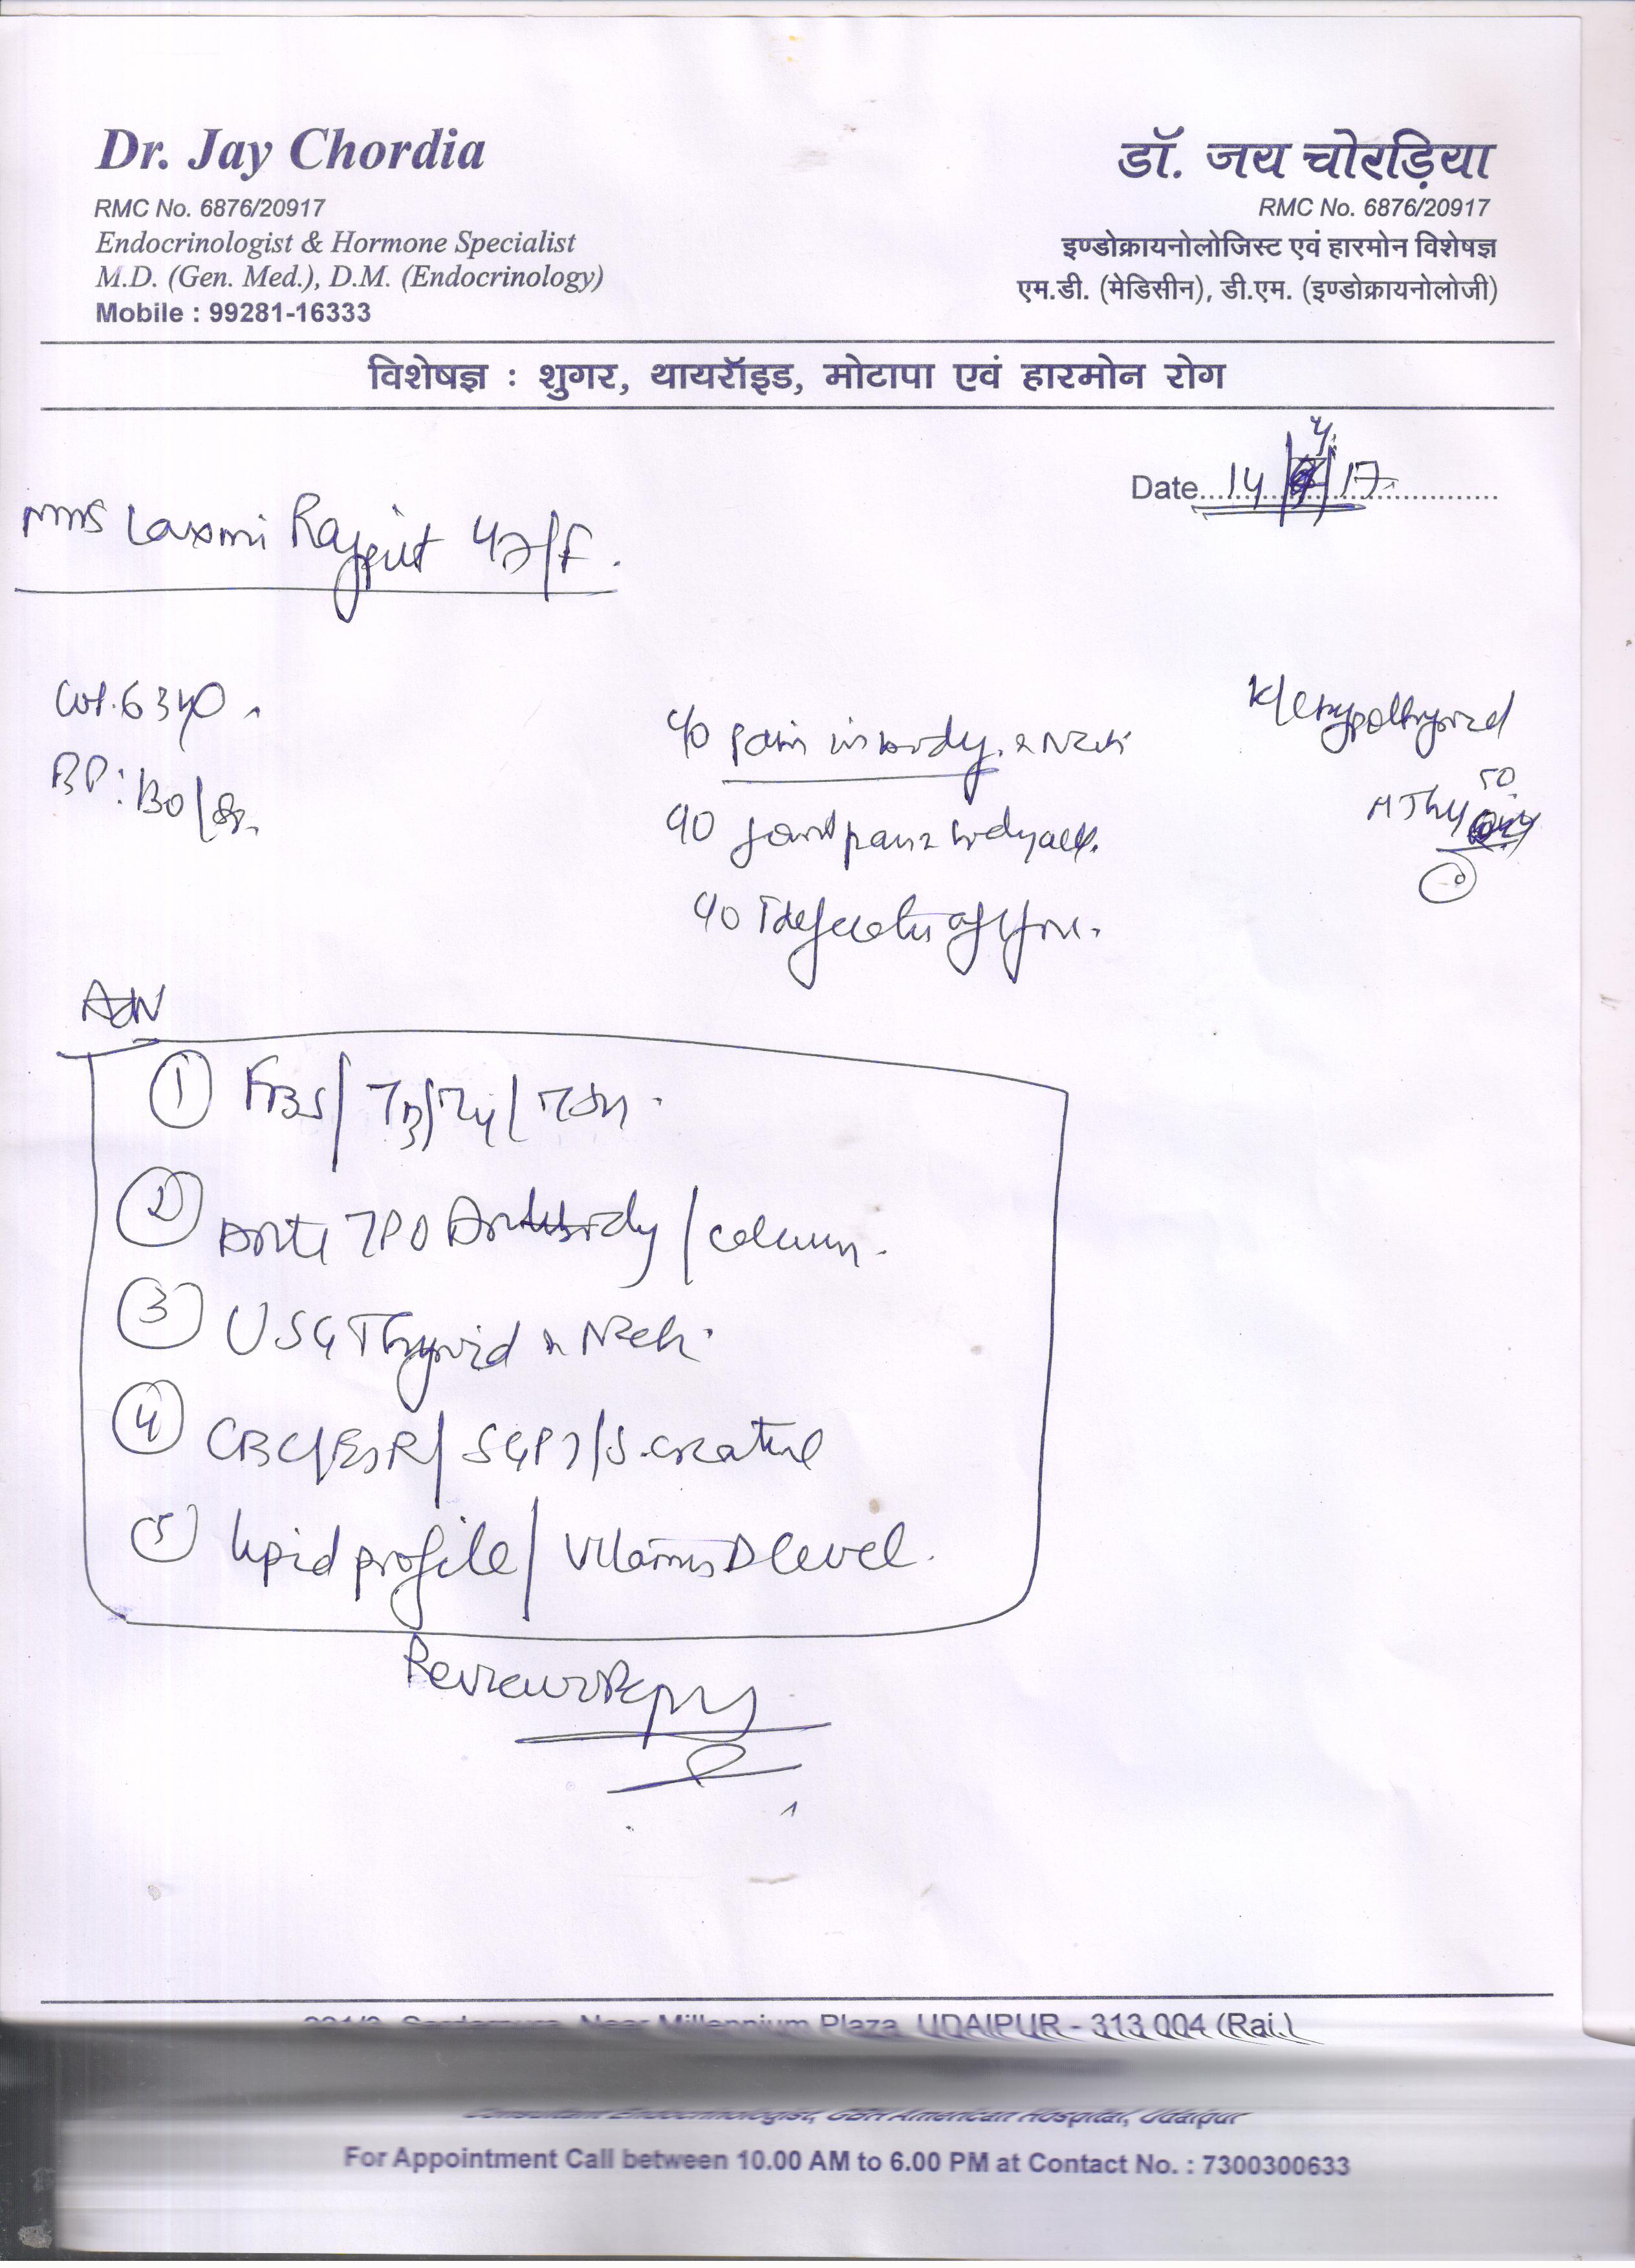 Dr. Jay Chordia
RMC No. 6876/20917
Endocrinologist & Hormone Specialist
M.D. (Gen. Med.), D.M. (Endocrinology)
Mobile : 99281-16333
डॉ. जय चोरड़िया
RMC No. 6876/20917
इण्डोक्रायनोलोजिस्ट एवं हारमोन विशेषज्ञ
एम.डी. (मेडिसीन), डी.एम. (इण्डोक्रायनोलोजी)
विशेषज्ञ : शुगर, थायरॉइड, मोटापा एवं हारमोन रोग
Date 14/4/17
Mrs Laxmi Rajput /F.
Wt.
BP: 130/
c/o pain in body. Neck
c/o joint pain bodyache.
c/o
K/c hypothyroid
50
Adv
1 FBS/T3/T4/TSH
2 Anti TPO Antibody/calcium.
3 USG Thyroid Neck.
4 CBC/ESR/SGPT/S.creatine
5 lipid profile/Vitamin D level.
Review
Sardarpura, Near Millennium Plaza, UDAIPUR - 313 004 (Raj.)
Consultant Endocrinologist, GBH American Hospital, Udaipur
For Appointment Call between 10.00 AM to 6.00 PM at Contact No. : 7300300633